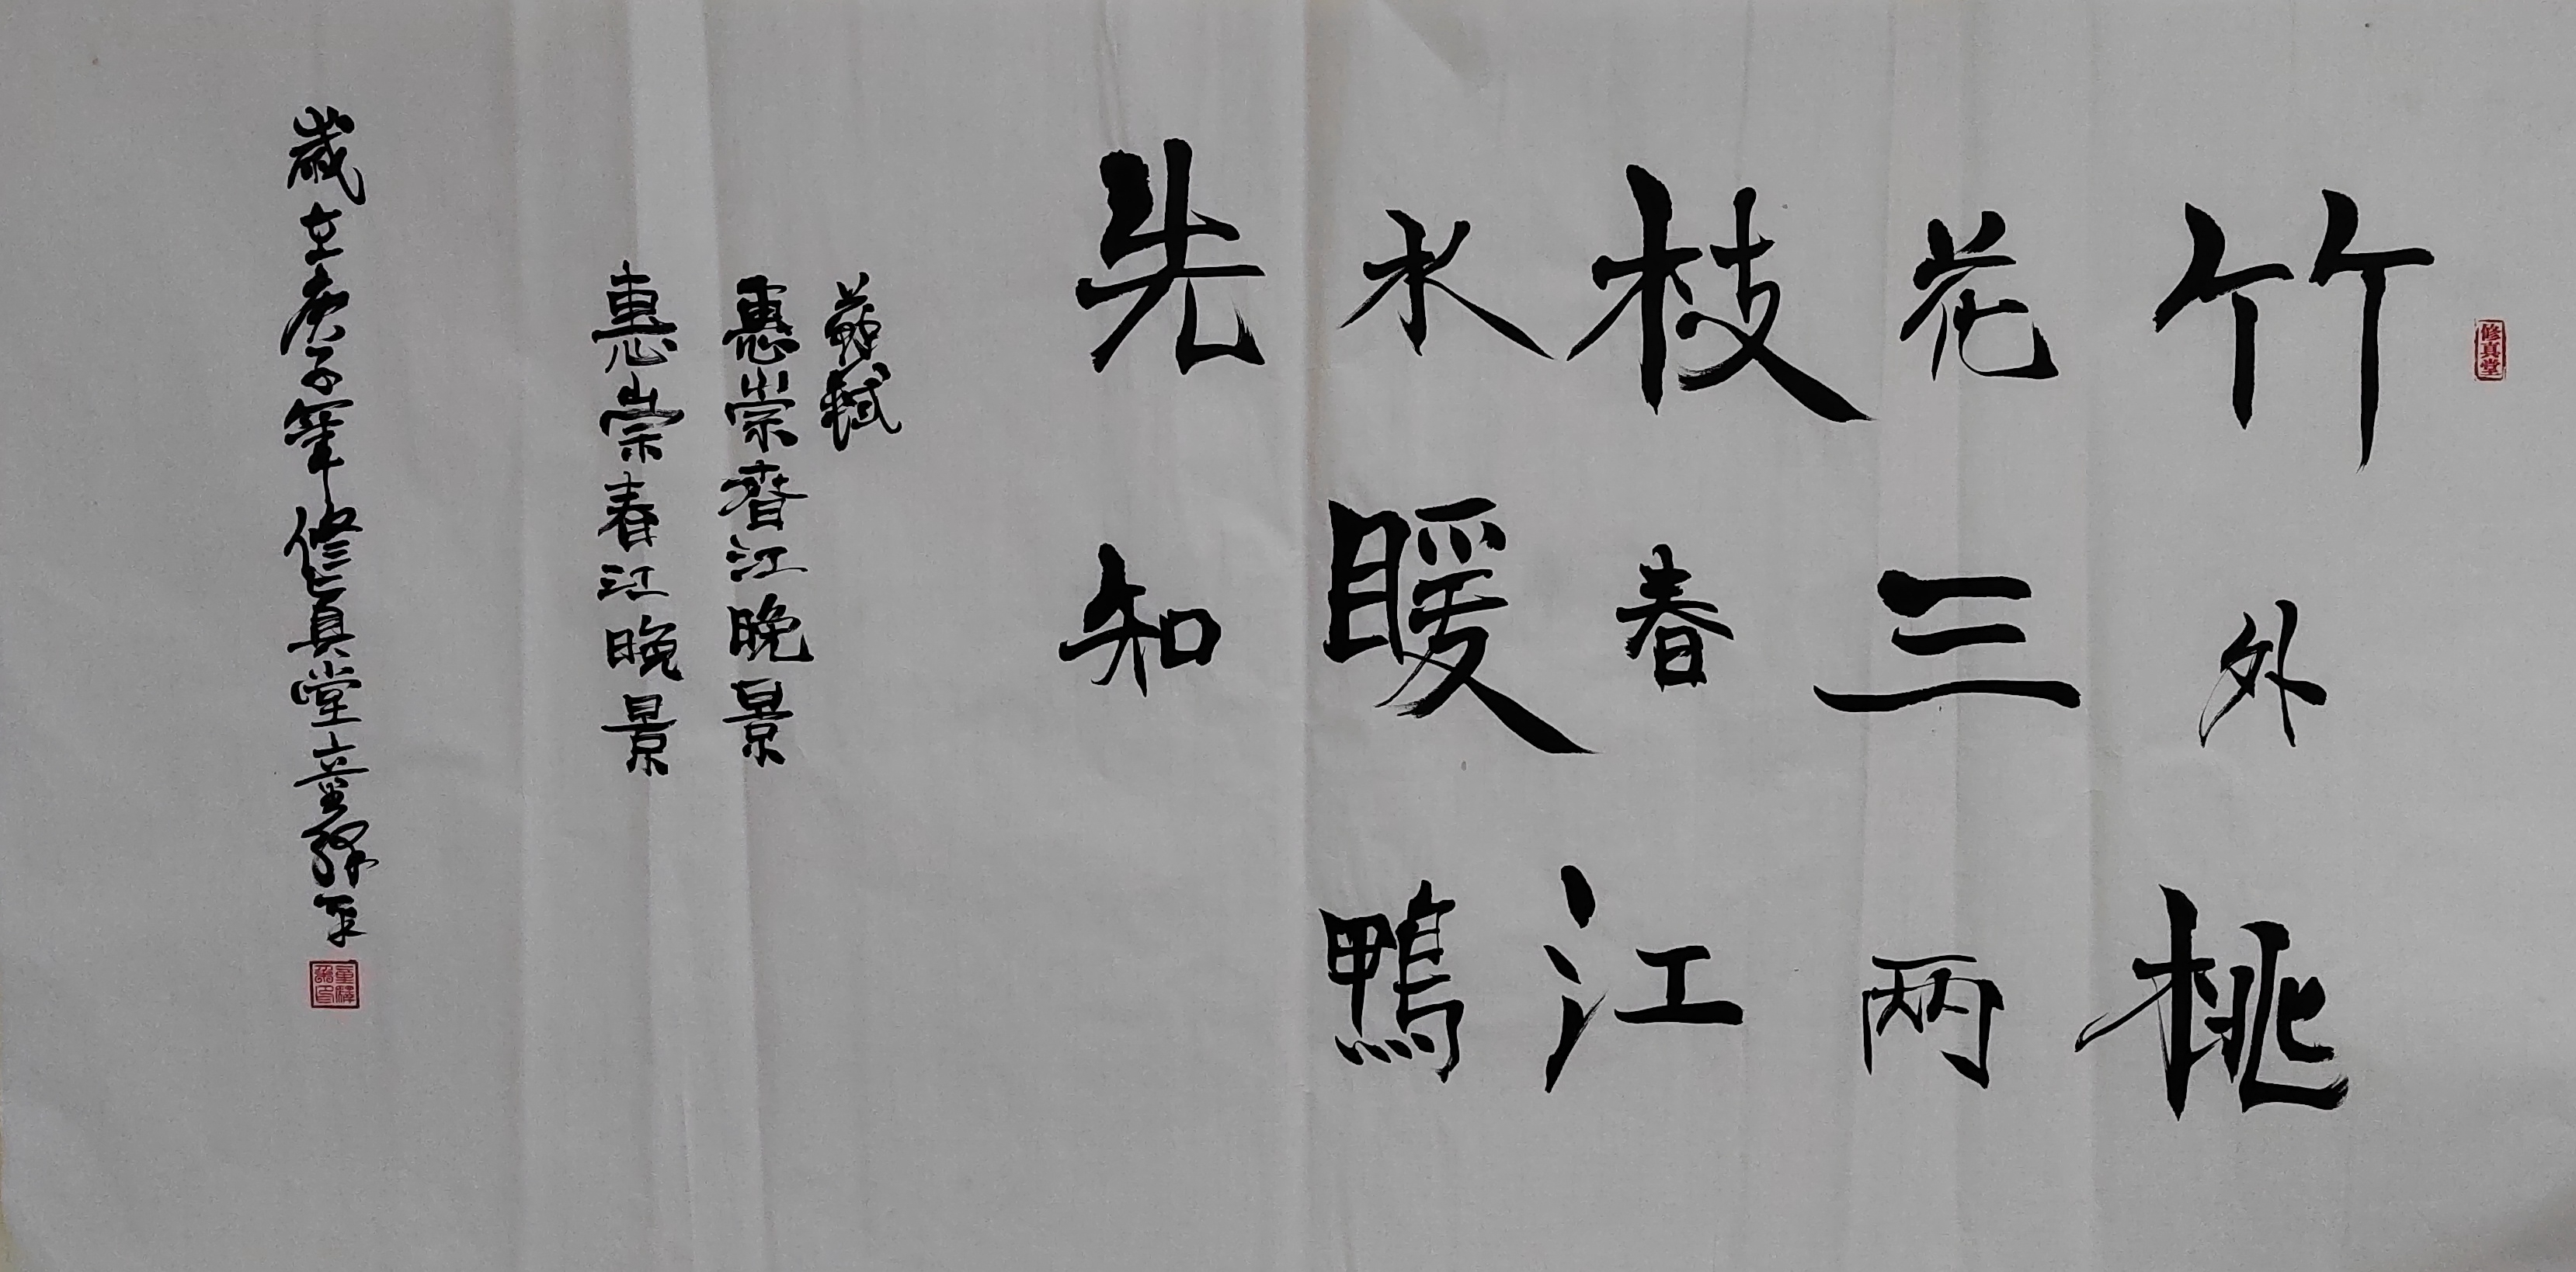 修真堂
竹外桃
花三两
枝春江
水暖鸭
先知
苏轼
惠崇春江晚景
惠崇春江晚景
岁在庚子年修真堂童